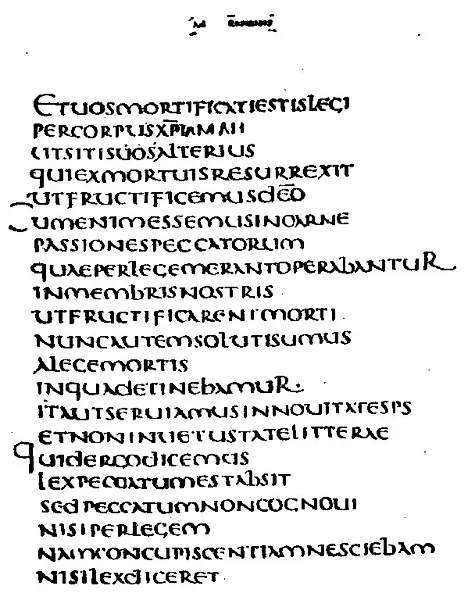 AD ROMANOS
ETUOSMORTIFICATIESTISLEGI
PERCORPUSX͞P͞I
UTSITISUOSALTERIUS
QUIEXMORTUISRESURREXIT
UTFRUCTIFICEMUSDEO͞
UMENIMESSEMUSINCARNE
PASSIONESPECCATORUM
QUAEPERLEGEMERANTOPERABANTUR
INMEMBRISNOSTRIS
UTFRUCTIFICARENTMORTI
NUNCAUTEMSOLUTISUMUS
ALEGEMORTIS
INQUADETINEBAMUR.
ITAUTSERUIAMUSINNOUITATESPS
ETNONINUETUSTATELITTERAE
QUIDERGODICEMUS
LEXPECCATUMESTABSIT
SEDPECCATUMNONCOGNOUI
NISIPERLEGEM
NAMCONCUPISCENTIAMNESCIEBAM
NISILEXDICERET